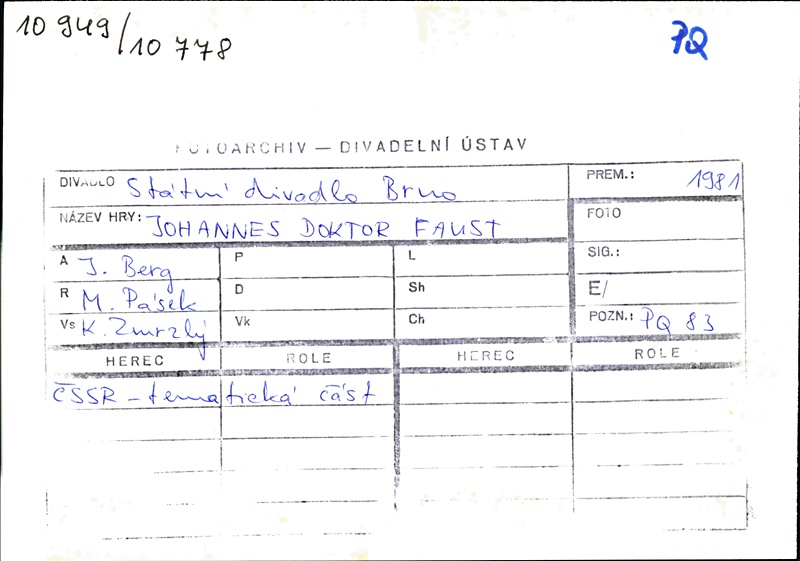 10 949/10 778
PQ
FOTOARCHIV — DIVADELNÍ ÚSTAV
DIVADLO Státní divadlo Brno
PREM.: 1981
NÁZEV HRY: JOHANNES DOKTOR FAUST
FOTO
A J. Berg
P
L
SIG.:
R M. Pásek
D
Sh
E/
Vs K. Zmrzlý
Vk
Ch
POZN.: PQ 83
HEREC ROLE HEREC ROLE
ČSSR – tematická část